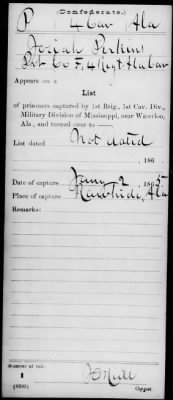 (Confederate.)
P 4 Cav Ala
Josiah Perkins
Pvt Co F, 4 Regt Ala Cav
Appears on a
List
of prisoners captured by 1st Brig., 1st Cav. Div.,
Military Division of Mississippi, near Waterloo,
Ala., and turned over to
List dated Not dated
, 186
Date of capture Jany 2, 1865
Place of capture Rawhide, Ala
Remarks:
Number of roll:
1
Copyist.